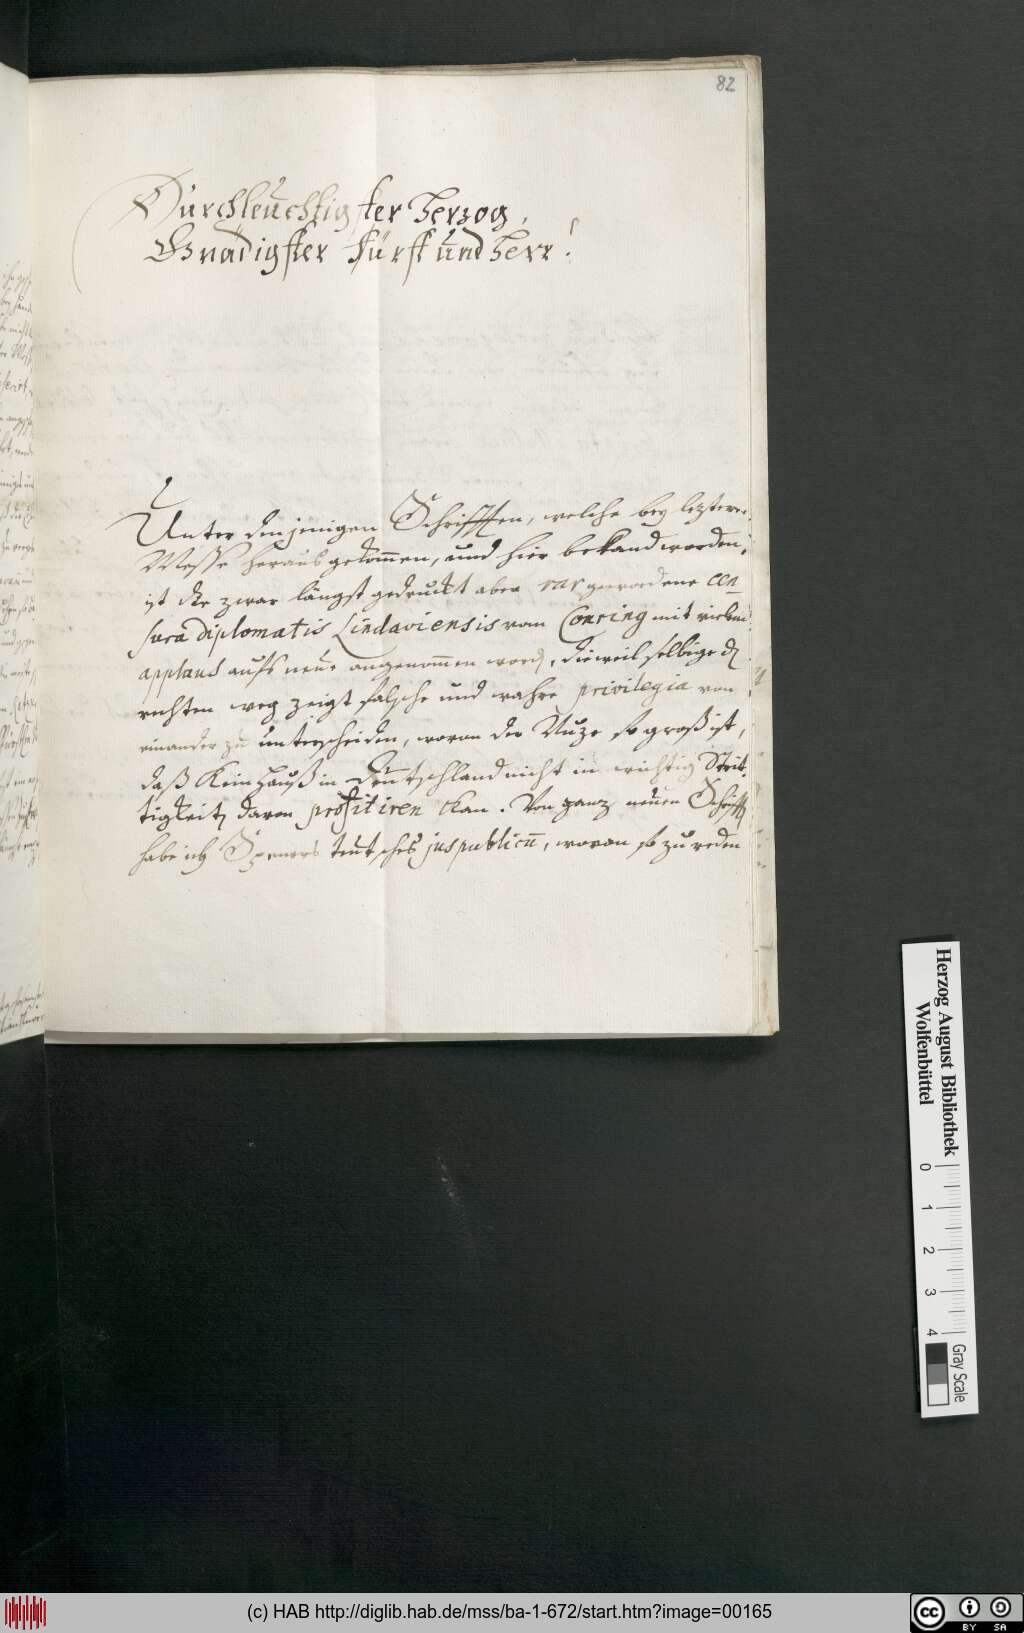 82
Durchleuchtigster Herzog,
Gnädigster Fürst und Herr!
Unter denjenigen Schrifften, welche bey lezterer
Messe herausgekommen, und hier bekand worden,
ist die zwar längst gedruckt aber rar gewordene cen-
sura diplomatis Lindaviensis vom Conring mit vielem
applaus aufs neue angenommen word, dieweil selbige d
rechten weg zeigt falsche und wahre privilegia von
einander zu unterscheiden, wovon der Nuze so groß ist,
daß Kein Hauß in Deutschland nicht in wichtig Strit-
tigkeit davon profitiren kan. Von ganz neuen Schrifft
habe ich Speners teutsches jus publicu, wovon so zu reden
Herzog August Bibliothek
Wolfenbüttel
0 1 2 3 4
Gray Scale
(c) HAB http://diglib.hab.de/mss/ba-1-672/start.htm?image=00165
cc BY SA